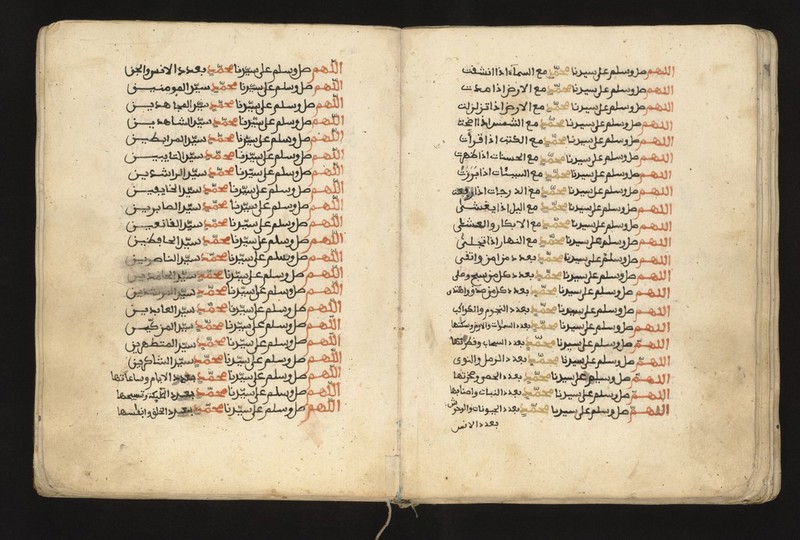 اللهم صل وسلم على سيدنا محمد مع السماء اذا انشقت
اللهم صل وسلم على سيدنا محمد مع الارض اذا مدت
اللهم صل وسلم على سيدنا محمد مع الارض اذا تزلزلت
اللهم صل وسلم على سيدنا محمد مع الشمس اذا
اللهم صل وسلم على سيدنا محمد مع الكتب اذا قرأت
اللهم صل وسلم على سيدنا محمد مع الحسنات اذا
اللهم صل وسلم على سيدنا محمد مع السيئات اذا
اللهم صل وسلم على سيدنا محمد مع الدرجات اذا
اللهم صل وسلم على سيدنا محمد مع اليل اذا يغشى
اللهم صل وسلم على سيدنا محمد مع الابكار والعشي
اللهم صل وسلم على سيدنا محمد مع النهار اذا تجلى
اللهم صل وسلم على سيدنا محمد بعدد من امن واتقى
اللهم صل وسلم على سيدنا محمد بعدد كل من سبح وصلى
اللهم صل وسلم على سيدنا محمد بعدد كل من واهتدى
اللهم صل وسلم على سيدنا محمد بعدد النجوم والكواكب
اللهم صل وسلم على سيدنا محمد بعدد السموات والارض
اللهم صل وسلم على سيدنا محمد بعدد السحاب
اللهم صل وسلم على سيدنا محمد بعدد الرمل والنوى
اللهم صل وسلم على سيدنا محمد بعدد الحصى
اللهم صل وسلم على سيدنا محمد بعدد النبات
اللهم صل وسلم على سيدنا محمد بعدد الحيوانات والوحوش
بعدد الانس
اللهم صل وسلم على سيدنا محمد بعدد الانس والجن
اللهم صل وسلم على سيدنا محمد سيد المومنين
اللهم صل وسلم على سيدنا محمد سيد المجاهدين
اللهم صل وسلم على سيدنا محمد سيد الشاهدين
اللهم صل وسلم على سيدنا محمد سيد المرابطين
اللهم صل وسلم على سيدنا محمد سيد
اللهم صل وسلم على سيدنا محمد سيد الراشدين
اللهم صل وسلم على سيدنا محمد سيد الخايفين
اللهم صل وسلم على سيدنا محمد سيد الصابرين
اللهم صل وسلم على سيدنا محمد سيد القانعين
اللهم صل وسلم على سيدنا محمد سيد الحافظين
اللهم صل وسلم على سيدنا محمد سيد الناصرين
اللهم صل وسلم على سيدنا محمد سيد الحامدين
اللهم صل وسلم على سيدنا محمد سيد المرشدين
اللهم صل وسلم على سيدنا محمد سيد العابدين
اللهم صل وسلم على سيدنا محمد سيد المزكين
اللهم صل وسلم على سيدنا محمد سيد المتطهرين
اللهم صل وسلم على سيدنا محمد سيد الشاكرين
اللهم صل وسلم على سيدنا محمد بعدد الايام وساعاتها
اللهم صل وسلم على سيدنا محمد بعدد وتسبيحها
اللهم صل وسلم على سيدنا محمد بعدد الخلق وانفسها